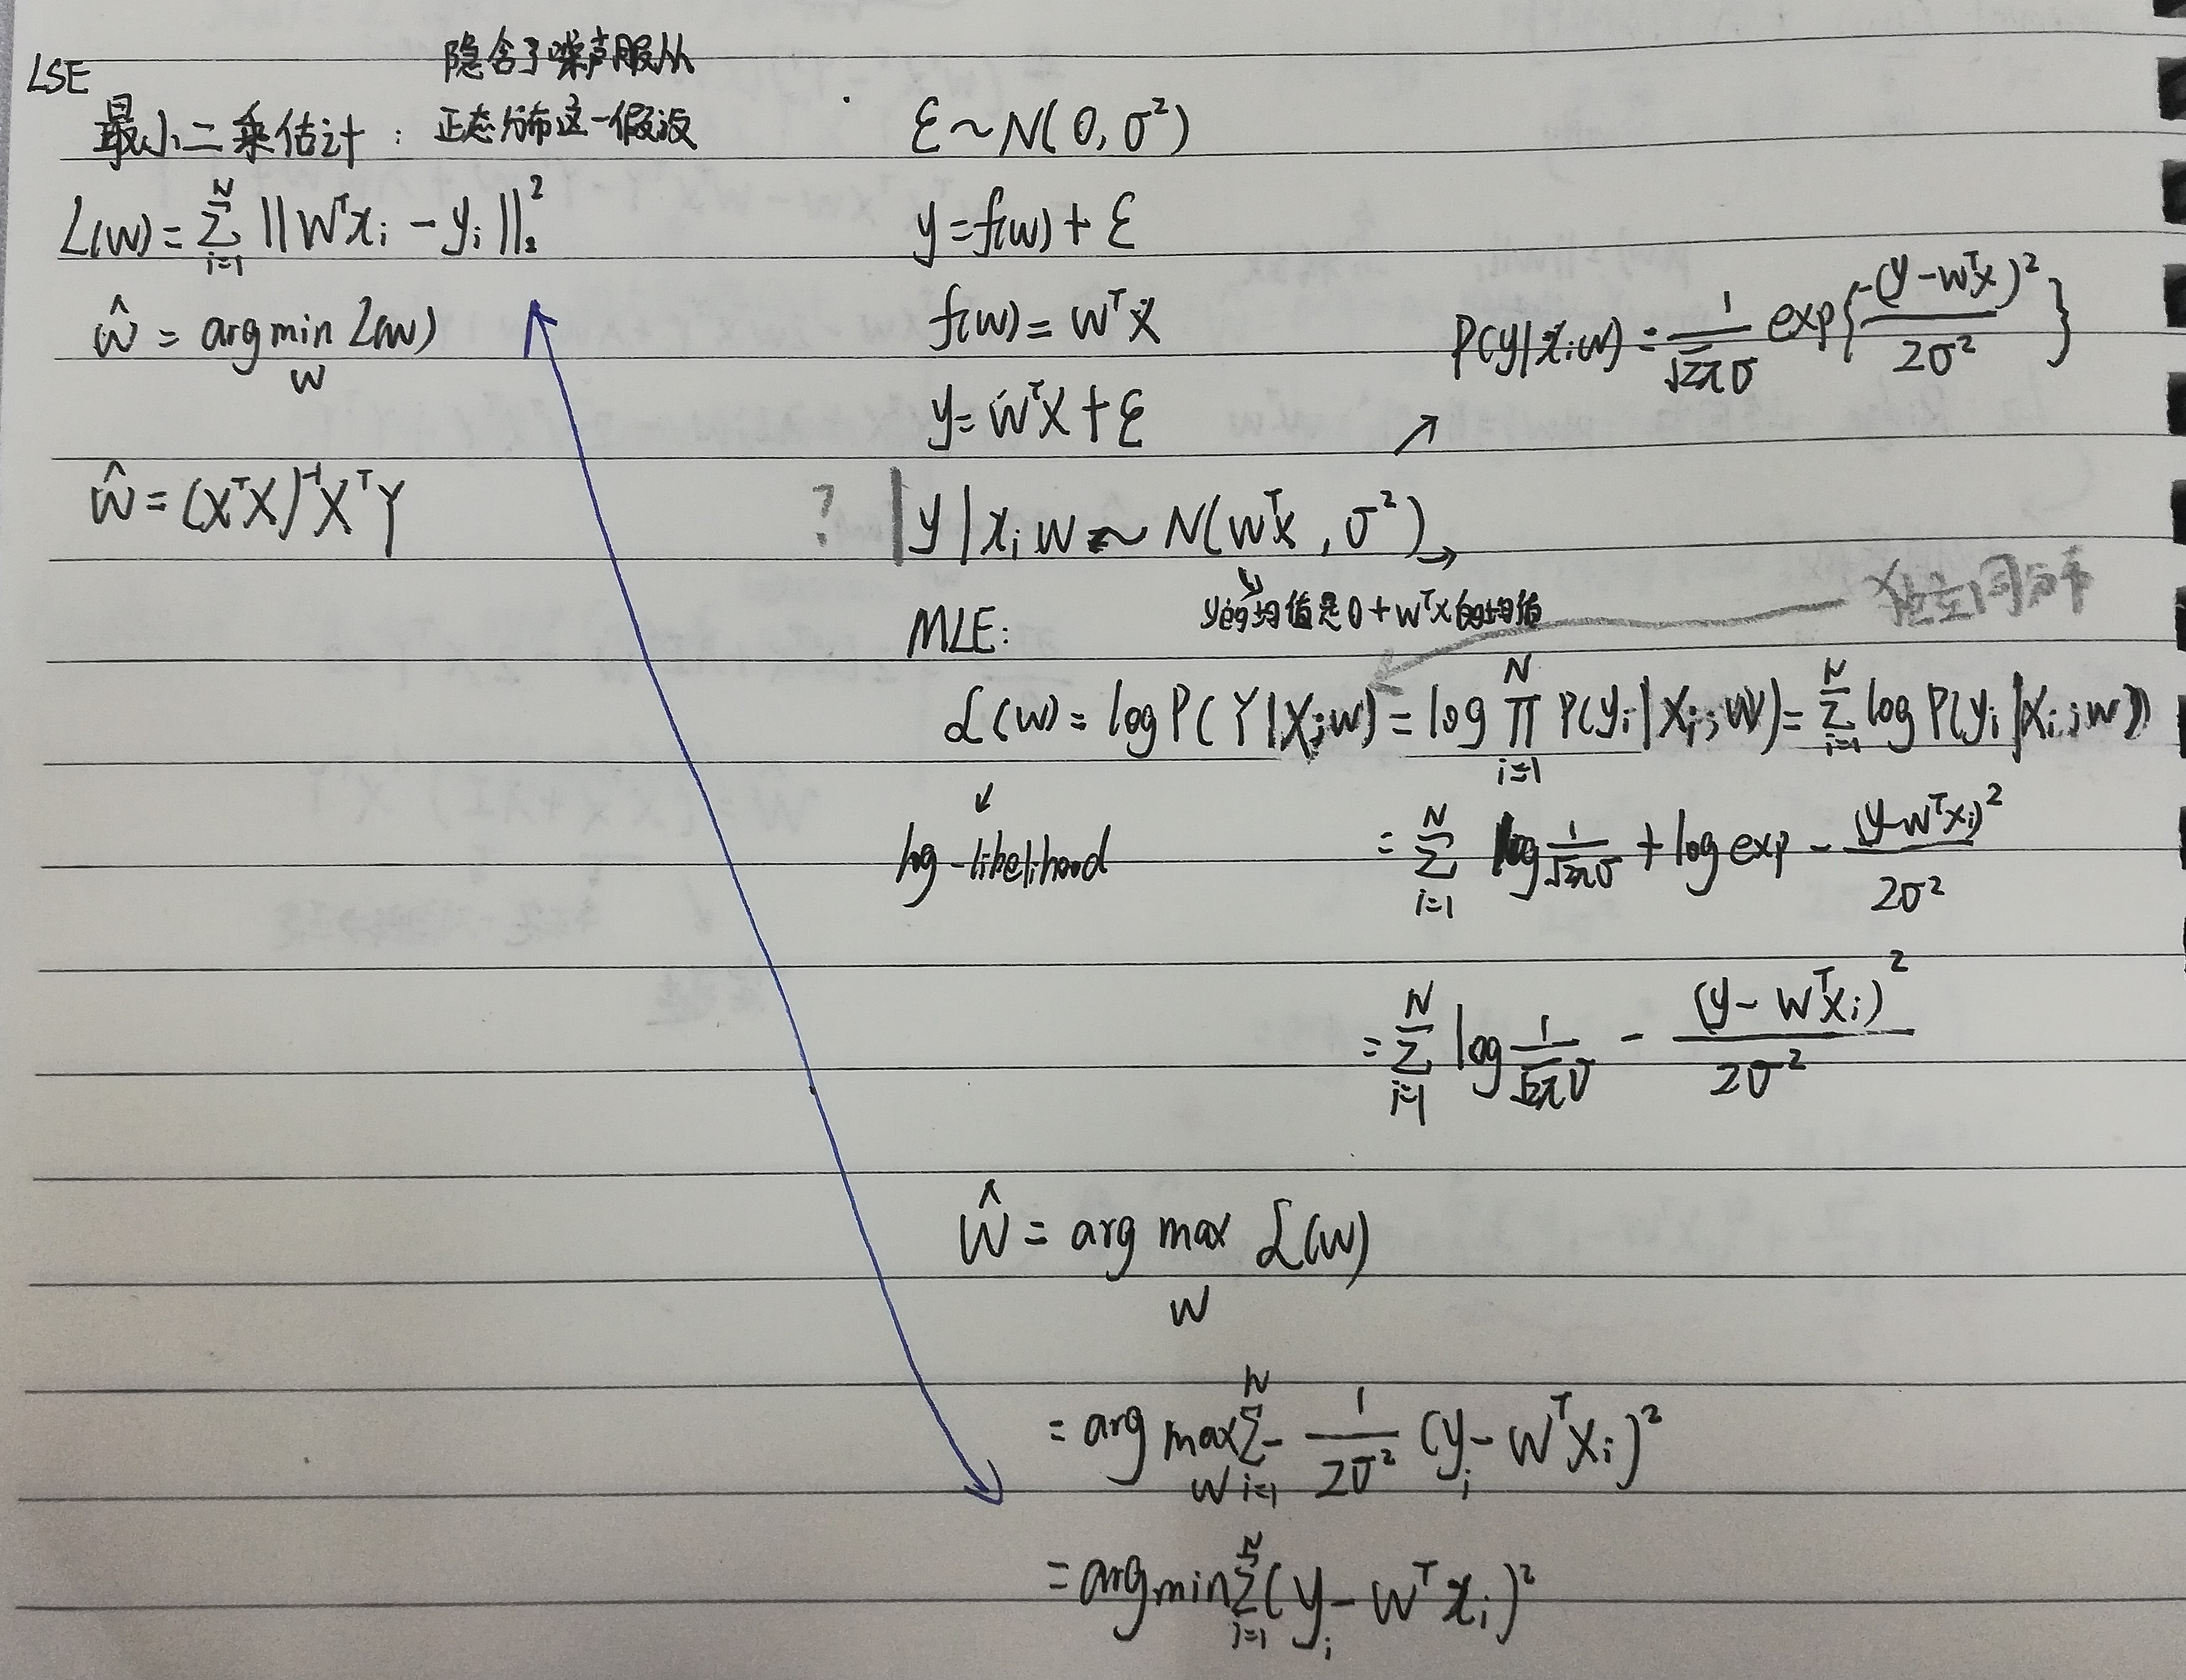 LSE
隐含了噪声服从
最小二乘估计：
正态分布这一假设
L(w) = Σ_{i=1}^{N} ||W^T x_i - y_i||_2^2
ŵ = arg min_w L(w)
ŵ = (X^T X)^{-1} X^T Y
ε ~ N(0, σ^2)
y = f(w) + ε
f(w) = w^T x
y = w^T x + ε
P(y|x;w) = 1/(√2π σ) exp{-(y-w^T x)^2 / 2σ^2}
? | y|x; w ~ N(w^T x, σ^2) →
y的均值是0+w^T x的均值
独立同分布
MLE:
L(w) = log P(Y|X;w) = log Π_{i=1}^{N} P(y_i|x_i;w) = Σ_{i=1}^{N} log P(y_i|x_i;w)
log-likelihood
= Σ_{i=1}^{N} log 1/(√2π σ) + log exp - (y-w^T x_i)^2 / 2σ^2
= Σ_{i=1}^{N} log 1/(√2π σ) - (y - w^T x_i)^2 / 2σ^2
ŵ = arg max_w L(w)
= arg max_w Σ_{i=1}^{N} - 1/(2σ^2) (y_i - w^T x_i)^2
= arg min Σ_{i=1}^{N} (y_i - w^T x_i)^2